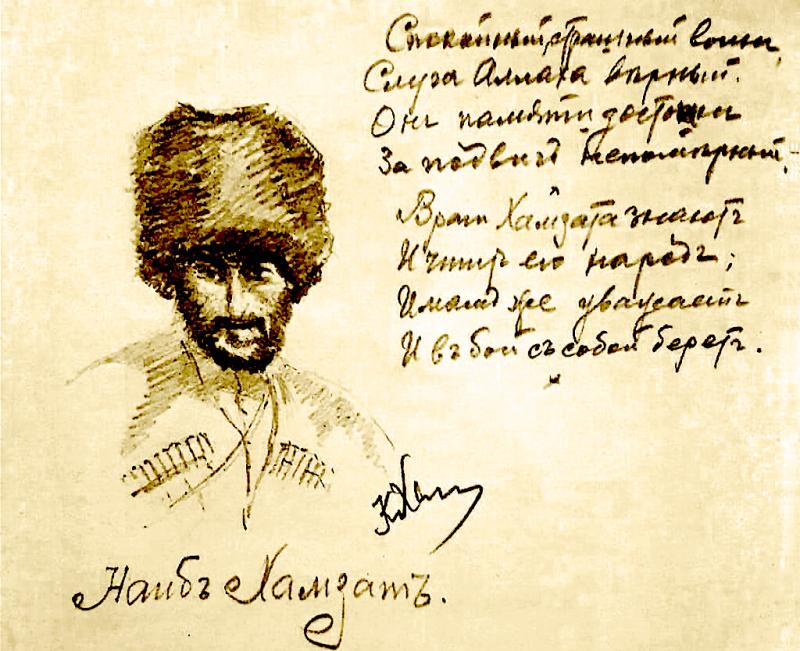 Спокойный страшный воин
Слуга Аллаха вѣрный.
Онъ памяти достоин
За подвигъ непомѣрный.
Враги Хамзата знаютъ
И чтитъ его народъ;
Имамъ же уважаетъ
И въ бой съ собой беретъ.
Наибъ Хамзатъ.